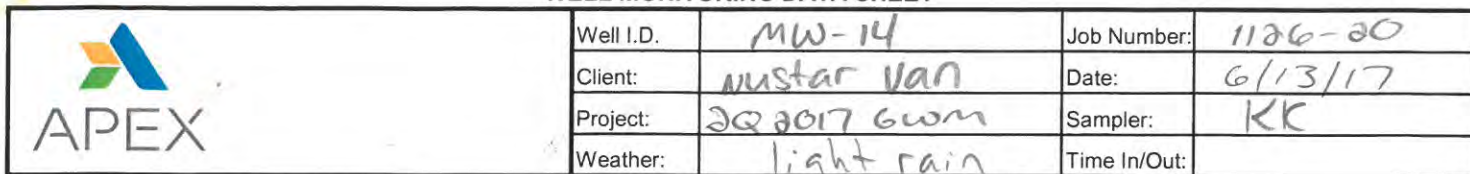 APEX
Well I.D. MW-14 Job Number: 1126-20
Client: Nustar Van Date: 6/13/17
Project: 2Q 2017 GWM Sampler: KK
Weather: light rain Time In/Out: